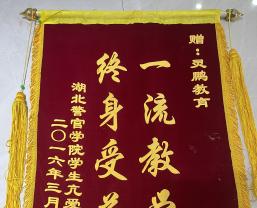 赠：灵鹏教育
一流教
终身受
湖北警官学院学生亢爱
二〇一六年三月